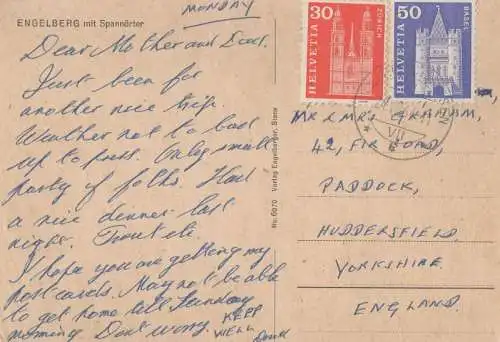 MONDAY
ENGELBERG mit Spannörter
Dear Mother and Dad.
Just been for
another nice trip.
Weather not to bad
up to press. Only small
party of folks. Had
a nice dinner last
night. Trout etc.
I hope you are getting my
post cards. May not be able
to get home till Sunday
morning. Dont worry. KEEP
WELL
No. 6970 Verlag Engelberger, Stans
30
HELVETIA
ZÜRICH
50
HELVETIA
BASEL
VII
MR & MRS GRAHAM,
42, FIR ROAD,
PADDOCK,
HUDDERSFIELD.
YORKSHIRE.
ENGLAND.